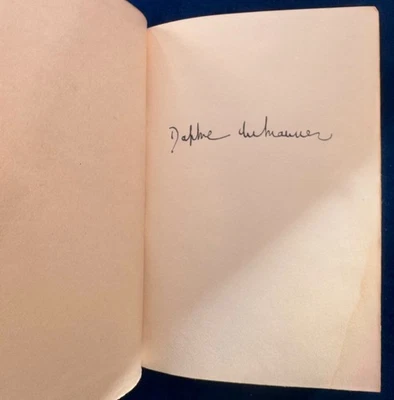 Daphne du Maurier